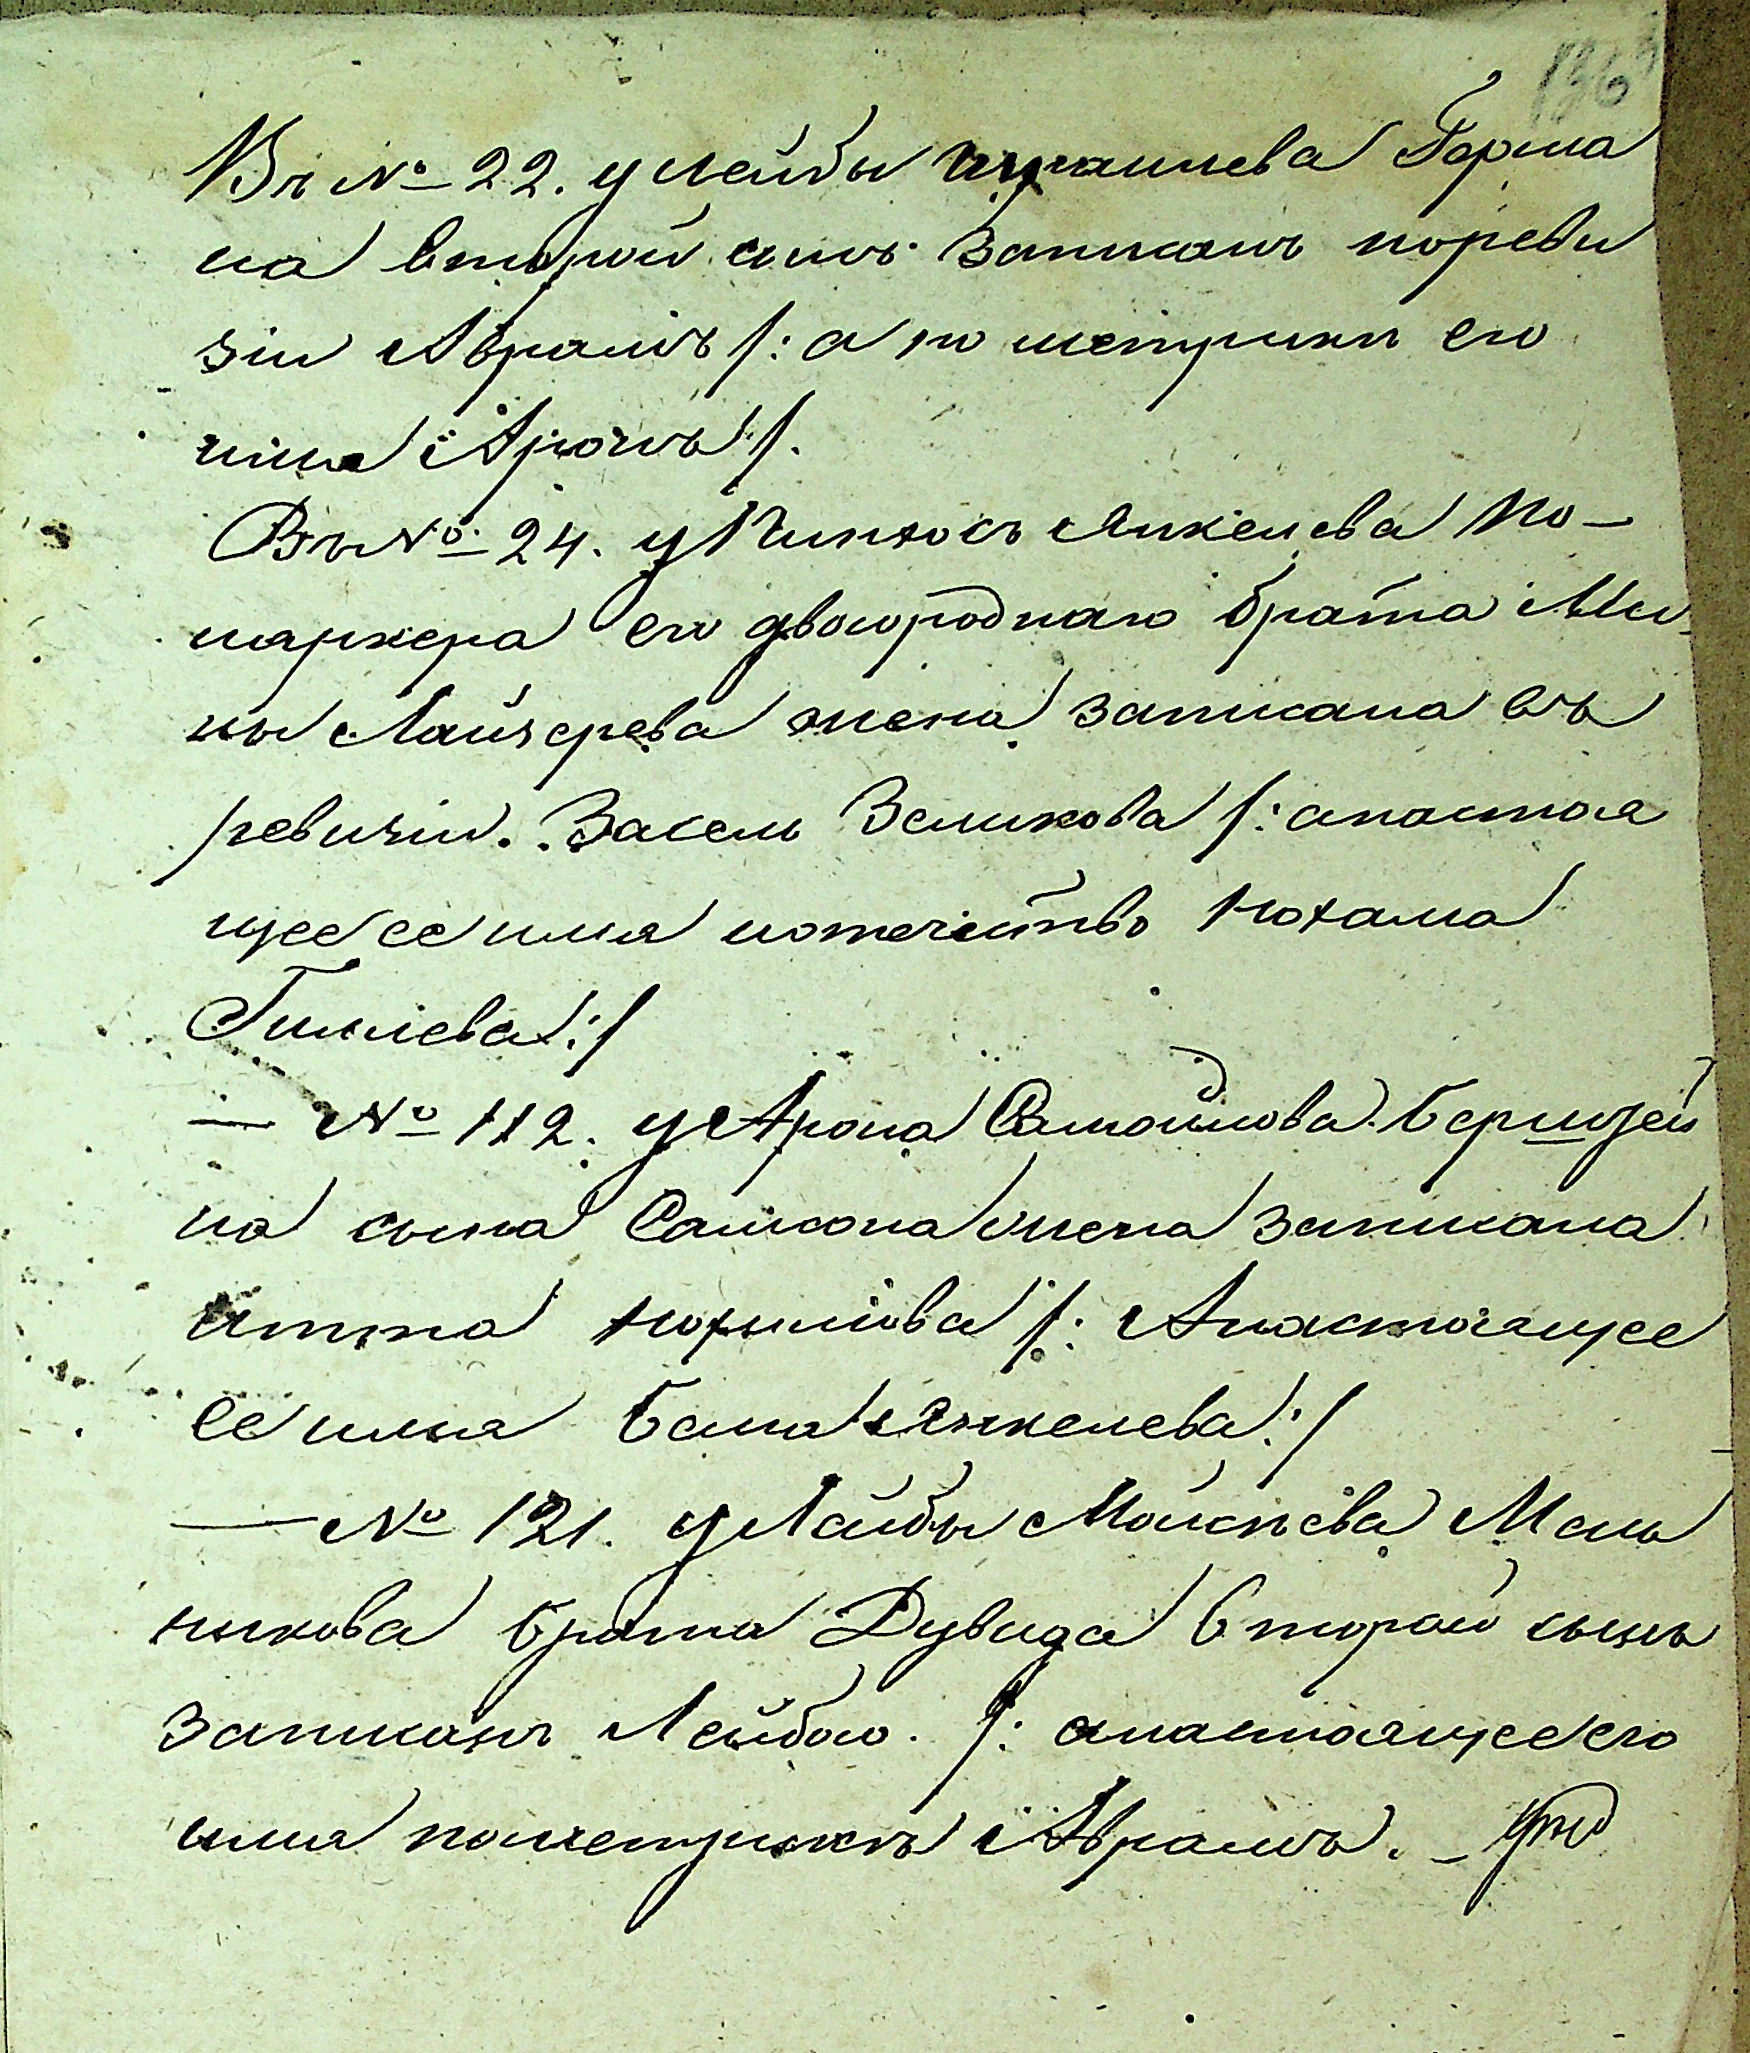 136
Въ № 22. у Лейбы Израилева Герша
на второй сынъ записанъ пореви
зіи Абрамъ /: а по метрики его
имя Аронъ :/.
Въ № 24. у Пинхосъ Янкелева По-
маркера его двоюроднаго брата Ми
ны Лайзерева жена записана въ
ревизіи. Засель Зеликова /: анастоя
щее ее имя иотечество Нохама
Гиллева :/
— № 112. у Арона Самойлова Берштей
на сына Самсона жена записана
Итта Нохимова /: Анастоящее
ее имя Бала Янкелева :/
— № 121. у Лейбы Мойсѣева Мель
никова брата Дувида второй сынъ
записанъ Лейбою. /: анастоящее его
имя пометрикѣ Абрамъ. –